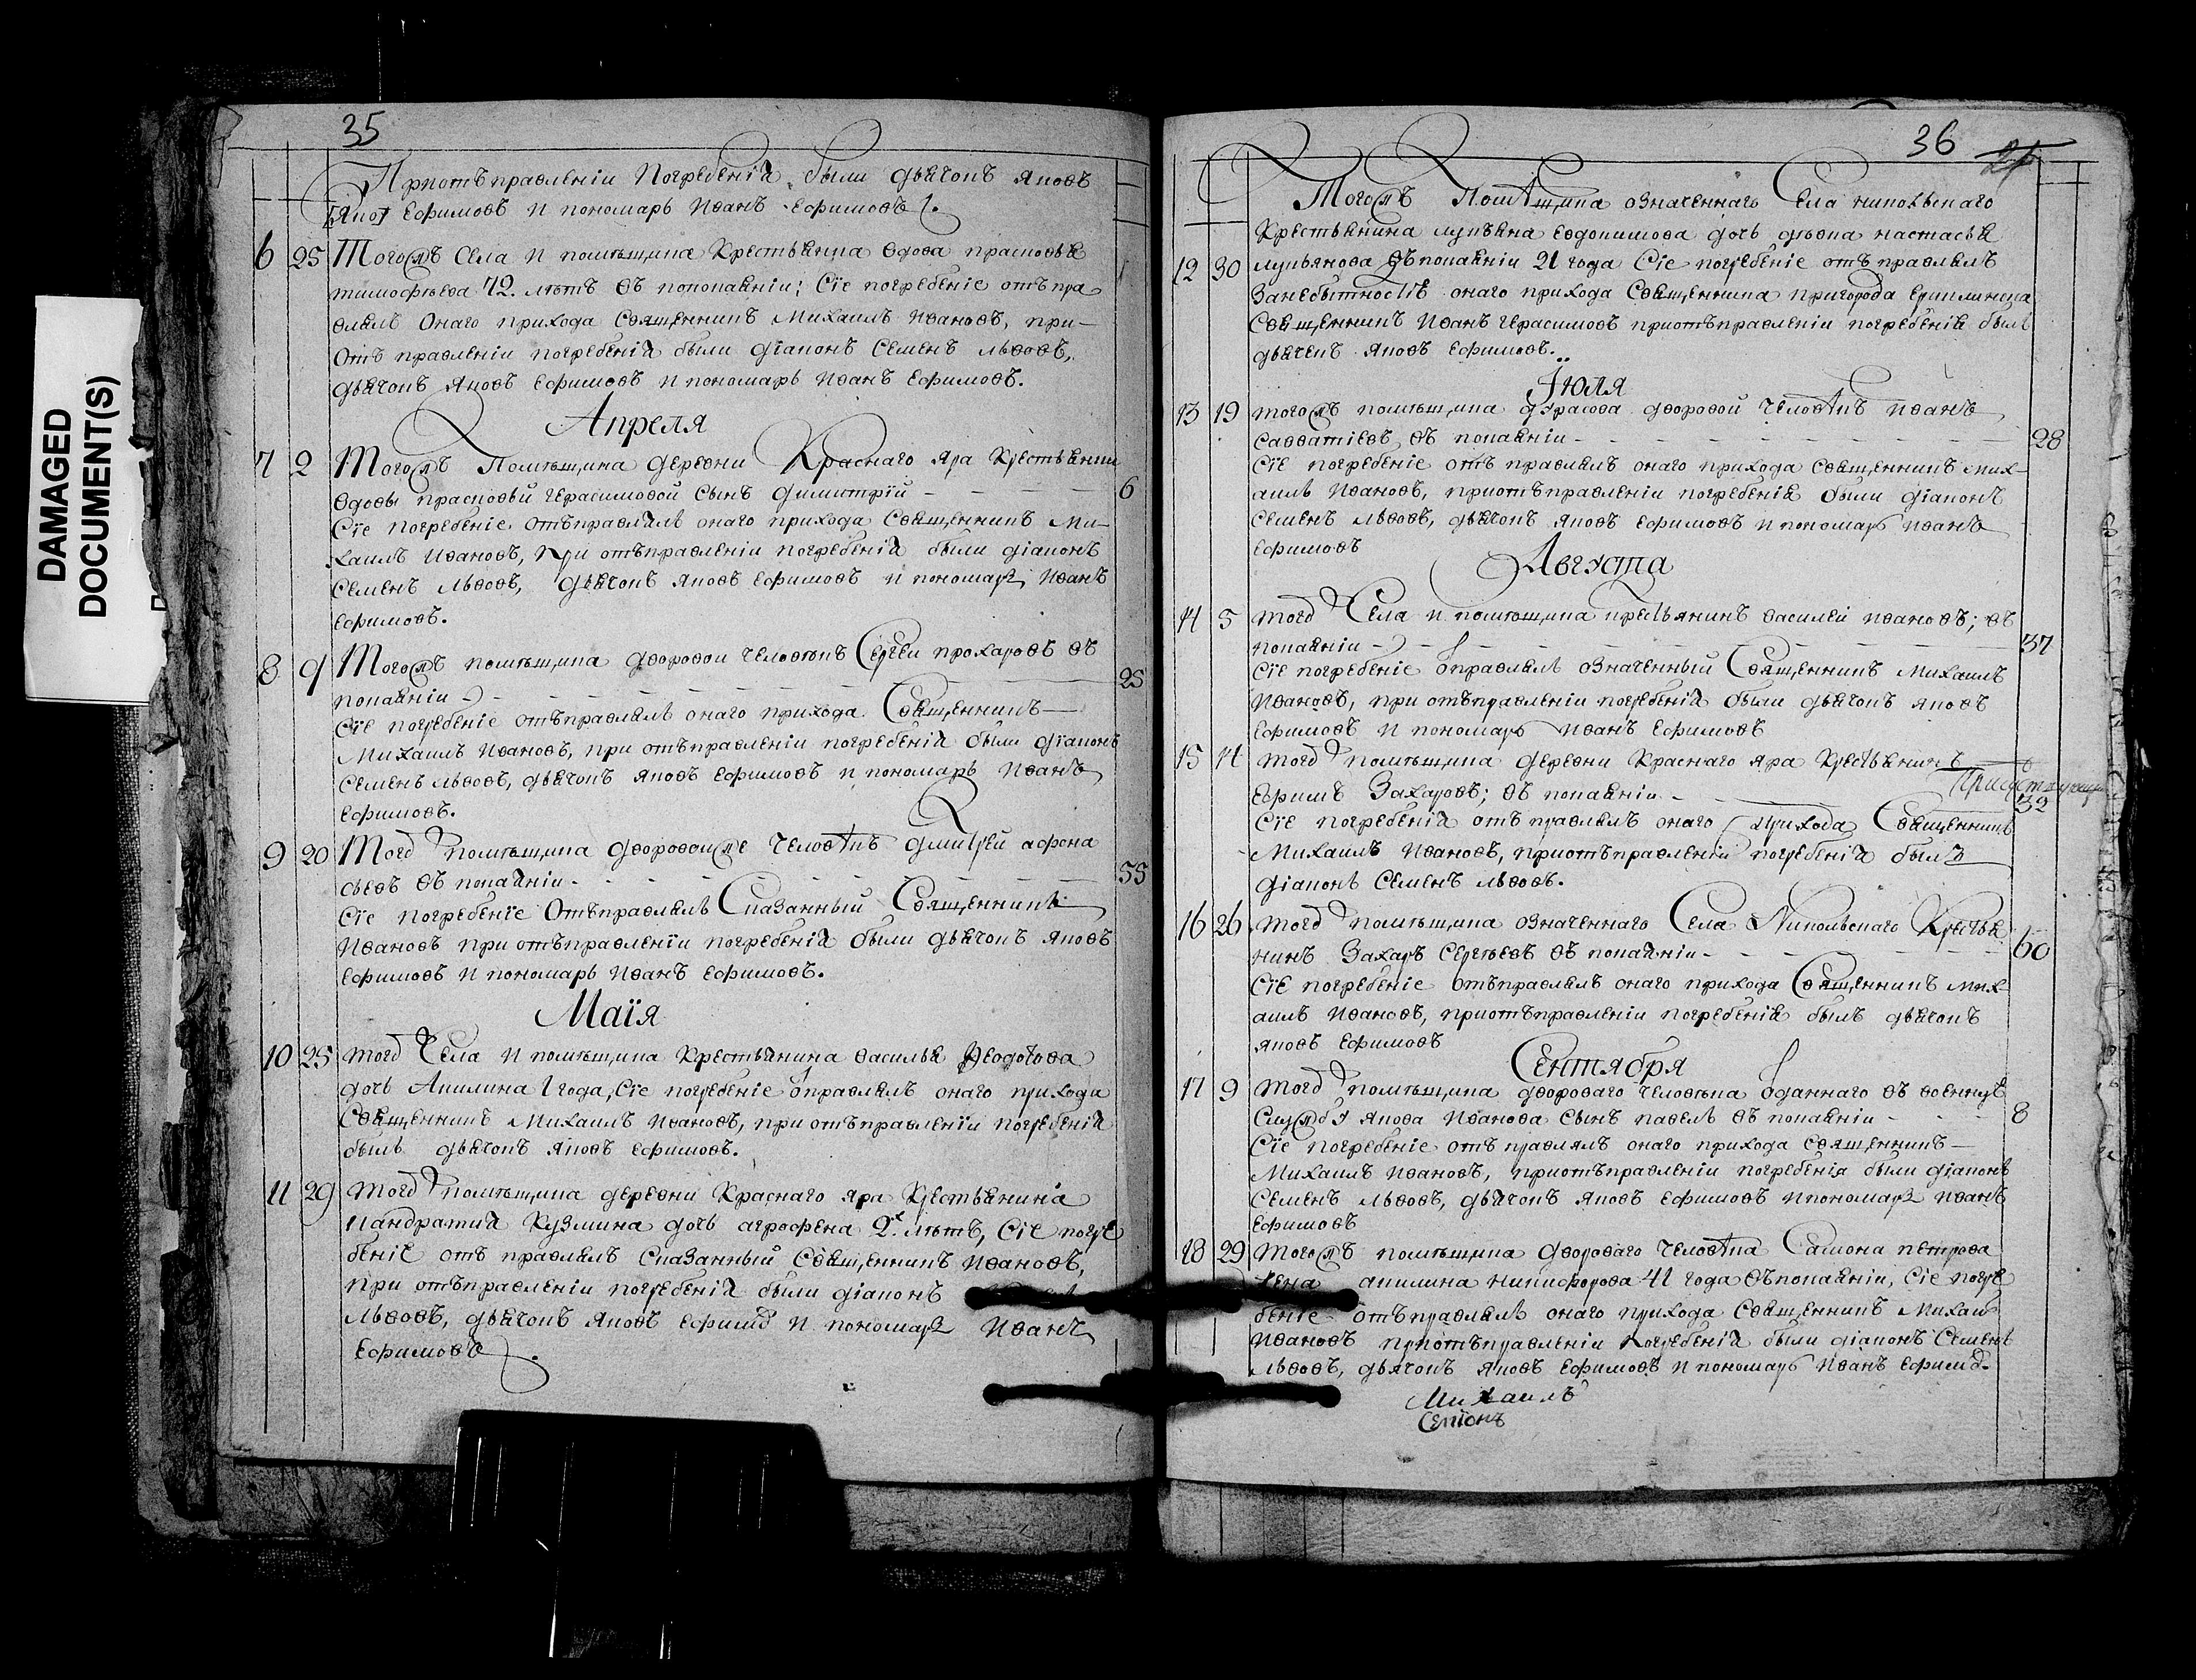 DAMAGED
DOCUMENT(S)
35
Приотъправленіи Погребенія были дьячокъ яковъ
Ефимовъ и пономарь Иванъ Ефимовъ.
6 25 Тогожъ Села и помѣщика Крестьянка вдова прасковья
тимофѣева 72. лѣтъ въ покаяніи; Сїе погребеніе отъпра
влялъ Онаго прихода Священникъ Михаилъ Ивановъ, при-
отъ правленіи погребенія были діаконъ Семенъ Львовъ,
дьячокъ яковъ Ефимовъ и пономарь Иванъ Ефимовъ.
Апреля
7 2 Тогожъ Помѣщика деревни Краснаго Яра Крестьянки
вдовы прасковьи герасимовой Сынъ димитрїй - - - 6
Сїе погребеніе отъправлялъ онаго прихода Священникъ Ми-
хаилъ Ивановъ, При отъправленіи погребенія были діаконъ
Семенъ Львовъ, дьячокъ яковъ Ефимовъ и пономарь Иванъ
Ефимовъ.
8 9 Тогожъ помѣщика дворовои человѣкъ Сергеи прохаровъ въ
покаяніи - - - 25
Сїе погребеніе отъправлялъ онаго прихода Священникъ
Михаилъ Ивановъ, при отъправленіи погребенія были діаконъ
Семенъ Львовъ, дьячокъ яковъ Ефимовъ и пономарь Иванъ
Ефимовъ.
9 20 Того помѣщика дворовои же человѣкъ дмитрей афона
сьевъ въ покаяніи - - - 55
Сїе погребеніе Отъправлялъ Сказанный Священникъ
Ивановъ при отъправленіи погребенія были дьячокъ яковъ
Ефимовъ и пономарь Иванъ Ефимовъ.
Маїя
10 25 того Села и помѣщика Крестьянина василья Ѳеодотова
дочь Акилина 1 года, Сїе погребеніе оправлялъ онаго прихода
Священникъ Михаилъ Ивановъ, при отъправленіи погребенія
былъ дьячокъ яковъ Ефимовъ.
11 29 того помѣщика деревни Краснаго яра Крестьянина
Кандратия Кузмина дочь агрофена 2.х лѣтъ, Сїе погре
беніе отъ правлялъ Сказанный Священникъ Ивановъ,
при отъправленіи погребенія были діаконъ
Львовъ, дьячокъ яковъ Ефимо и пономарь Иванъ
Ефимовъ.
36
Тогожъ Помѣщика означеннаго Села никольскаго
Крестьянина лукьяна евдокимова дочь дѣвка настасья
12 30 лукьянова въпокаяніи 21 года Сїе погребеніе отъ правлялъ
Занебытностїе онаго прихода Священника пригорода Ериклинска
Священникъ Иванъ герасимовъ приотъправленіи погребенія былъ
дьячекъ яковъ Ефимовъ.
Іюля
13 19 тогожъ помѣщика дурасова дворовой человѣкъ Иванъ
Савватіевъ въ покаяніи - - - 28
Сїе погребеніе отъ правлялъ онаго прихода Священникъ мих-
аилъ Ивановъ, приотъправленіи погребенія были діаконъ
Семенъ Львовъ, дьячокъ яковъ Ефимовъ и пономарь Иванъ
Ефимовъ
Августа
14 5 того Села и помѣщика крестьянинъ василеи ивановъ; въ
покаяніи - - - 37
Сїе погребеніе оправлялъ означенный Священникъ Михаилъ
Ивановъ, при отъправленіи погребенія были дьячокъ яковъ
Ефимовъ и пономарь Иванъ Ефимовъ
15 14 того помѣщика деревни Краснаго яра Крестьянинъ
Ефимъ Захаровъ; въ покаяніи - - 32
Сїе погребенія отъ правлялъ онаго прихода Священникъ
Михаилъ Ивановъ, приотъправленіи погребенія былъ
діаконъ Семенъ Львовъ.
16 26 того помѣщика означеннаго Села Никольскаго Крестья
нинъ Захаръ Сергѣевъ въ покаяніи - - - 60
Сїе погребеніе отъправлялъ онаго прихода Священникъ мих-
аилъ Ивановъ, приотъправленіи погребенія былъ дьячокъ
яковъ Ефимовъ
Сентября
17 9 того помѣщика двороваго человѣка зданнаго въ военную
Службу якова Иванова Сынъ павелъ въ покаяніи - - - 8
Сїе погребеніе отъ правлялъ онаго прихода священникъ
Михаилъ Ивановъ, приотъправленіи погребенія были діаконъ
Семенъ Львовъ, дьячокъ яковъ Ефимовъ ипономарь Иванъ
Ефимовъ
18 29 Тогожъ помѣщика двороваго человѣка Самона петрова
жена акилина никифорова 41 года въпокаяніи, Сїе погре
беніе отъправлялъ онаго прихода Священникъ Михаилъ
Ивановъ приотъправленіи погребенія были діаконъ Семенъ
Львовъ, дьячокъ яковъ Ефимовъ и пономарь Иванъ Ефимо.
Михаилъ